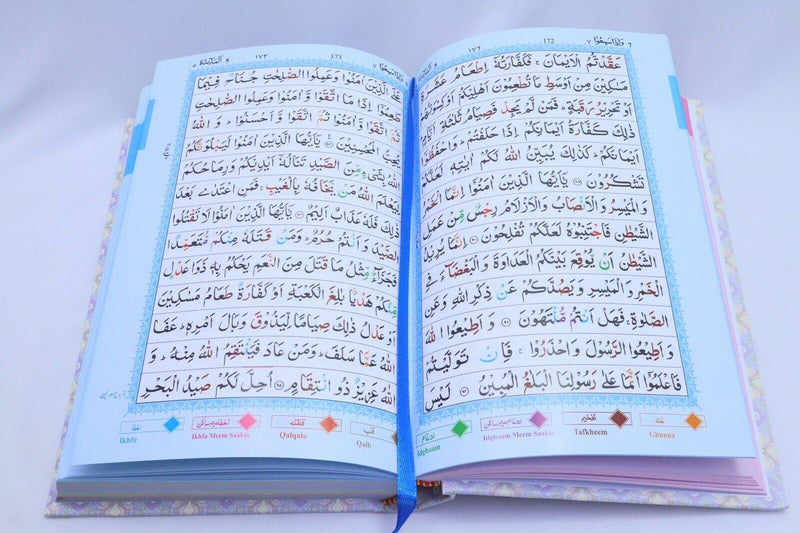 وَاِذَا سَمِعُوْا ٧
172
١٧٢
عَقَّدْتُّمُ الْاَيْمَانَ ۚ فَكَفَّارَتُهٗۤ اِطْعَامُ
مَسٰكِيْنَ مِنْ اَوْسَطِ مَا تُطْعِمُوْنَ اَهْلِيْكُمْ اَوْ كِسْوَتُهُمْ
اَوْ تَحْرِيْرُ رَقَبَةٍ ؕ فَمَنْ لَّمْ يَجِدْ فَصِيَامُ ثَلٰثَةِ اَيَّامٍ
ذٰلِكَ كَفَّارَةُ اَيْمَانِكُمْ اِذَا حَلَفْتُمْ ؕ وَاحْفَظُوْۤا
اَيْمَانَكُمْ ؕ كَذٰلِكَ يُبَيِّنُ اللّٰهُ لَكُمْ اٰيٰتِهٖ لَعَلَّكُمْ
تَشْكُرُوْنَ ۸۹ يٰۤاَيُّهَا الَّذِيْنَ اٰمَنُوْۤا اِنَّمَا الْخَمْرُ
وَالْمَيْسِرُ وَالْاَنْصَابُ وَالْاَزْلَامُ رِجْسٌ مِّنْ عَمَلِ
الشَّيْطٰنِ فَاجْتَنِبُوْهُ لَعَلَّكُمْ تُفْلِحُوْنَ ۹۰ اِنَّمَا يُرِيْدُ
الشَّيْطٰنُ اَنْ يُّوْقِعَ بَيْنَكُمُ الْعَدَاوَةَ وَالْبَغْضَآءَ فِى
الْخَمْرِ وَالْمَيْسِرِ وَيَصُدَّكُمْ عَنْ ذِكْرِ اللّٰهِ وَعَنِ
الصَّلٰوةِ ۚ فَهَلْ اَنْتُمْ مُّنْتَهُوْنَ ۹۱ وَاَطِيْعُوا اللّٰهَ
وَاَطِيْعُوا الرَّسُوْلَ وَاحْذَرُوْا ۚ فَاِنْ تَوَلَّيْتُمْ
فَاعْلَمُوْۤا اَنَّمَا عَلٰى رَسُوْلِنَا الْبَلٰغُ الْمُبِيْنُ ۹۲ لَيْسَ
غنّه
Ghunna
تفخيم
Tafkheem
ادغام ميم ساكن
Idghaam Meem Saakin
ادغام
Idghaam
وَاِذَا سَمِعُوْا ٧
173
١٧٣
اَلْمَآئِدَة ٥
عَلَى الَّذِيْنَ اٰمَنُوْا وَعَمِلُوا الصّٰلِحٰتِ جُنَاحٌ فِيْمَا
طَعِمُوْۤا اِذَا مَا اتَّقَوْا وَّاٰمَنُوْا وَعَمِلُوا الصّٰلِحٰتِ
ثُمَّ اتَّقَوْا وَّاٰمَنُوْا ثُمَّ اتَّقَوْا وَّاَحْسَنُوْا ؕ وَاللّٰهُ
يُحِبُّ الْمُحْسِنِيْنَ ۹۳ يٰۤاَيُّهَا الَّذِيْنَ اٰمَنُوْا لَيَبْلُوَنَّكُمُ
اللّٰهُ بِشَىْءٍ مِّنَ الصَّيْدِ تَنَالُهٗۤ اَيْدِيْكُمْ وَرِمَاحُكُمْ
لِيَعْلَمَ اللّٰهُ مَنْ يَّخَافُهٗ بِالْغَيْبِ ۚ فَمَنِ اعْتَدٰى بَعْدَ
ذٰلِكَ فَلَهٗ عَذَابٌ اَلِيْمٌ ۹۴ يٰۤاَيُّهَا الَّذِيْنَ اٰمَنُوْا لَا تَقْتُلُوا
الصَّيْدَ وَاَنْتُمْ حُرُمٌ ؕ وَمَنْ قَتَلَهٗ مِنْكُمْ مُّتَعَمِّدًا
فَجَزَآءٌ مِّثْلُ مَا قَتَلَ مِنَ النَّعَمِ يَحْكُمُ بِهٖ ذَوَا عَدْلٍ
مِّنْكُمْ هَدْيًاۢ بٰلِغَ الْكَعْبَةِ اَوْ كَفَّارَةٌ طَعَامُ مَسٰكِيْنَ
اَوْ عَدْلُ ذٰلِكَ صِيَامًا لِّيَذُوْقَ وَبَالَ اَمْرِهٖ ؕ عَفَا
اللّٰهُ عَمَّا سَلَفَ ؕ وَمَنْ عَادَ فَيَنْتَقِمُ اللّٰهُ مِنْهُ ؕ وَ
اللّٰهُ عَزِيْزٌ ذُو انْتِقَامٍ ۹۵ اُحِلَّ لَكُمْ صَيْدُ الْبَحْرِ
قلب
Qalb
قلقله
Qalqala
اخفا ميم ساكن
Ikhfa Meem Saakin
اخفا
Ikhfa